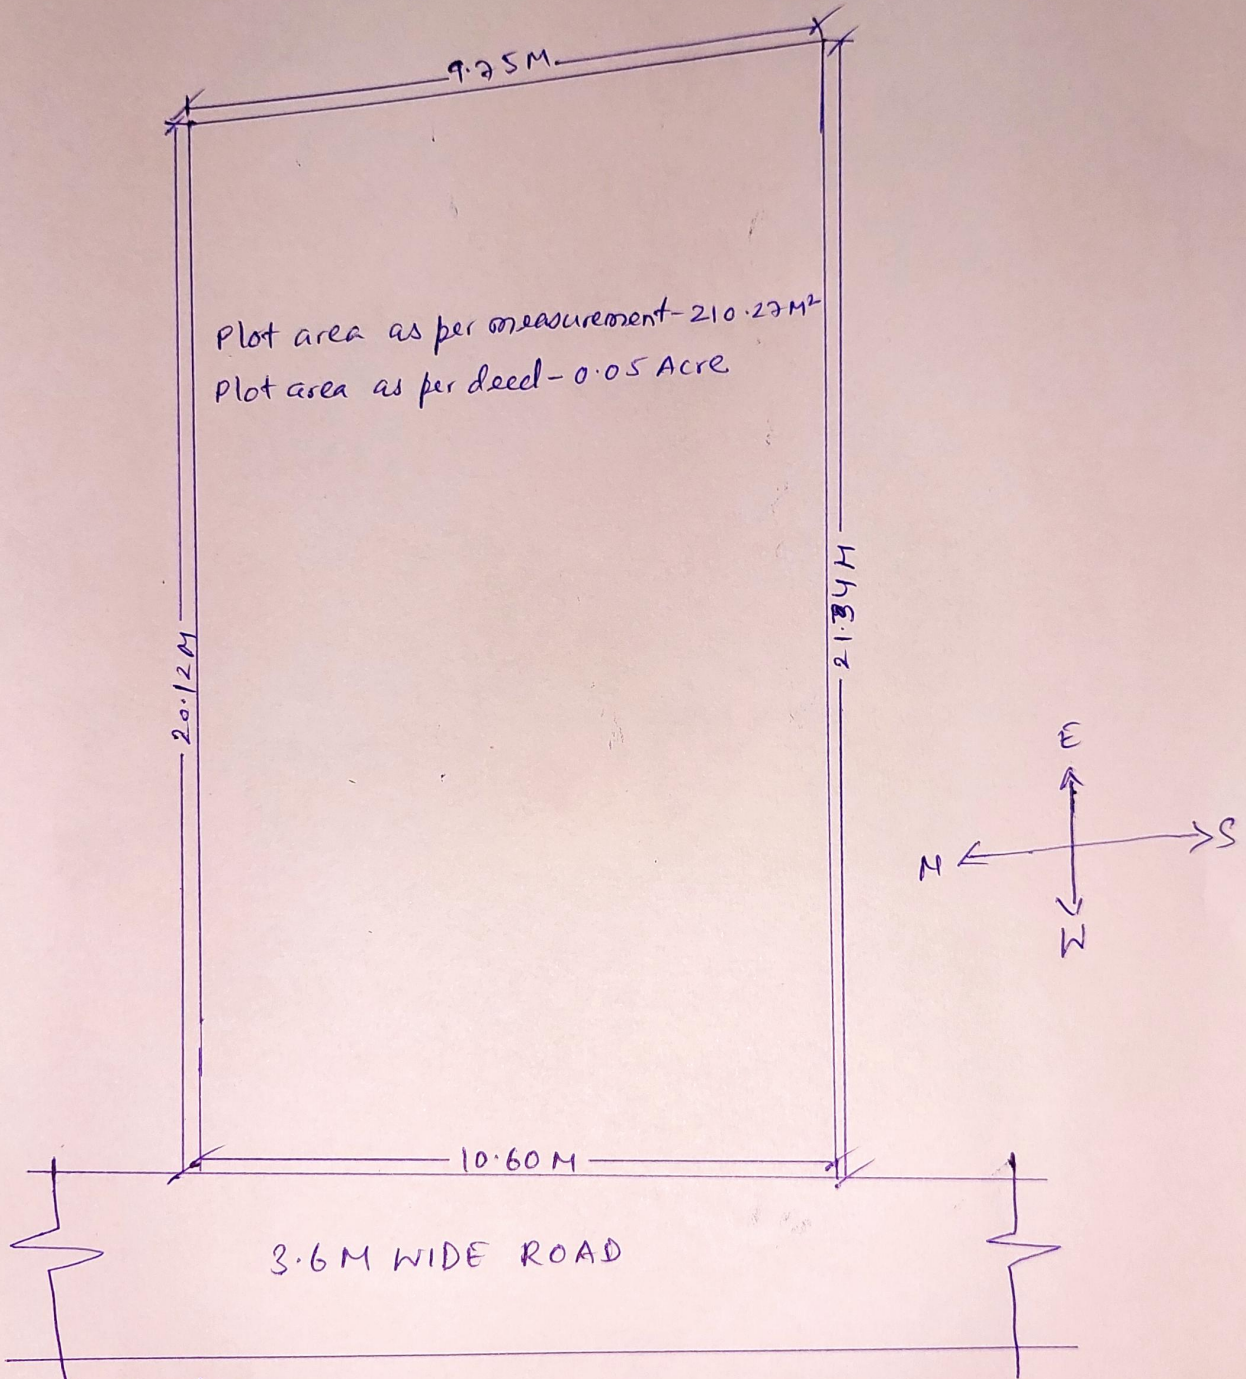 9.75M.
Plot area as per measurement-210.27M²
Plot area as per deed-0.05 Acre
20.12M
21.34M
E
N
S
W
10.60M
3.6M WIDE ROAD